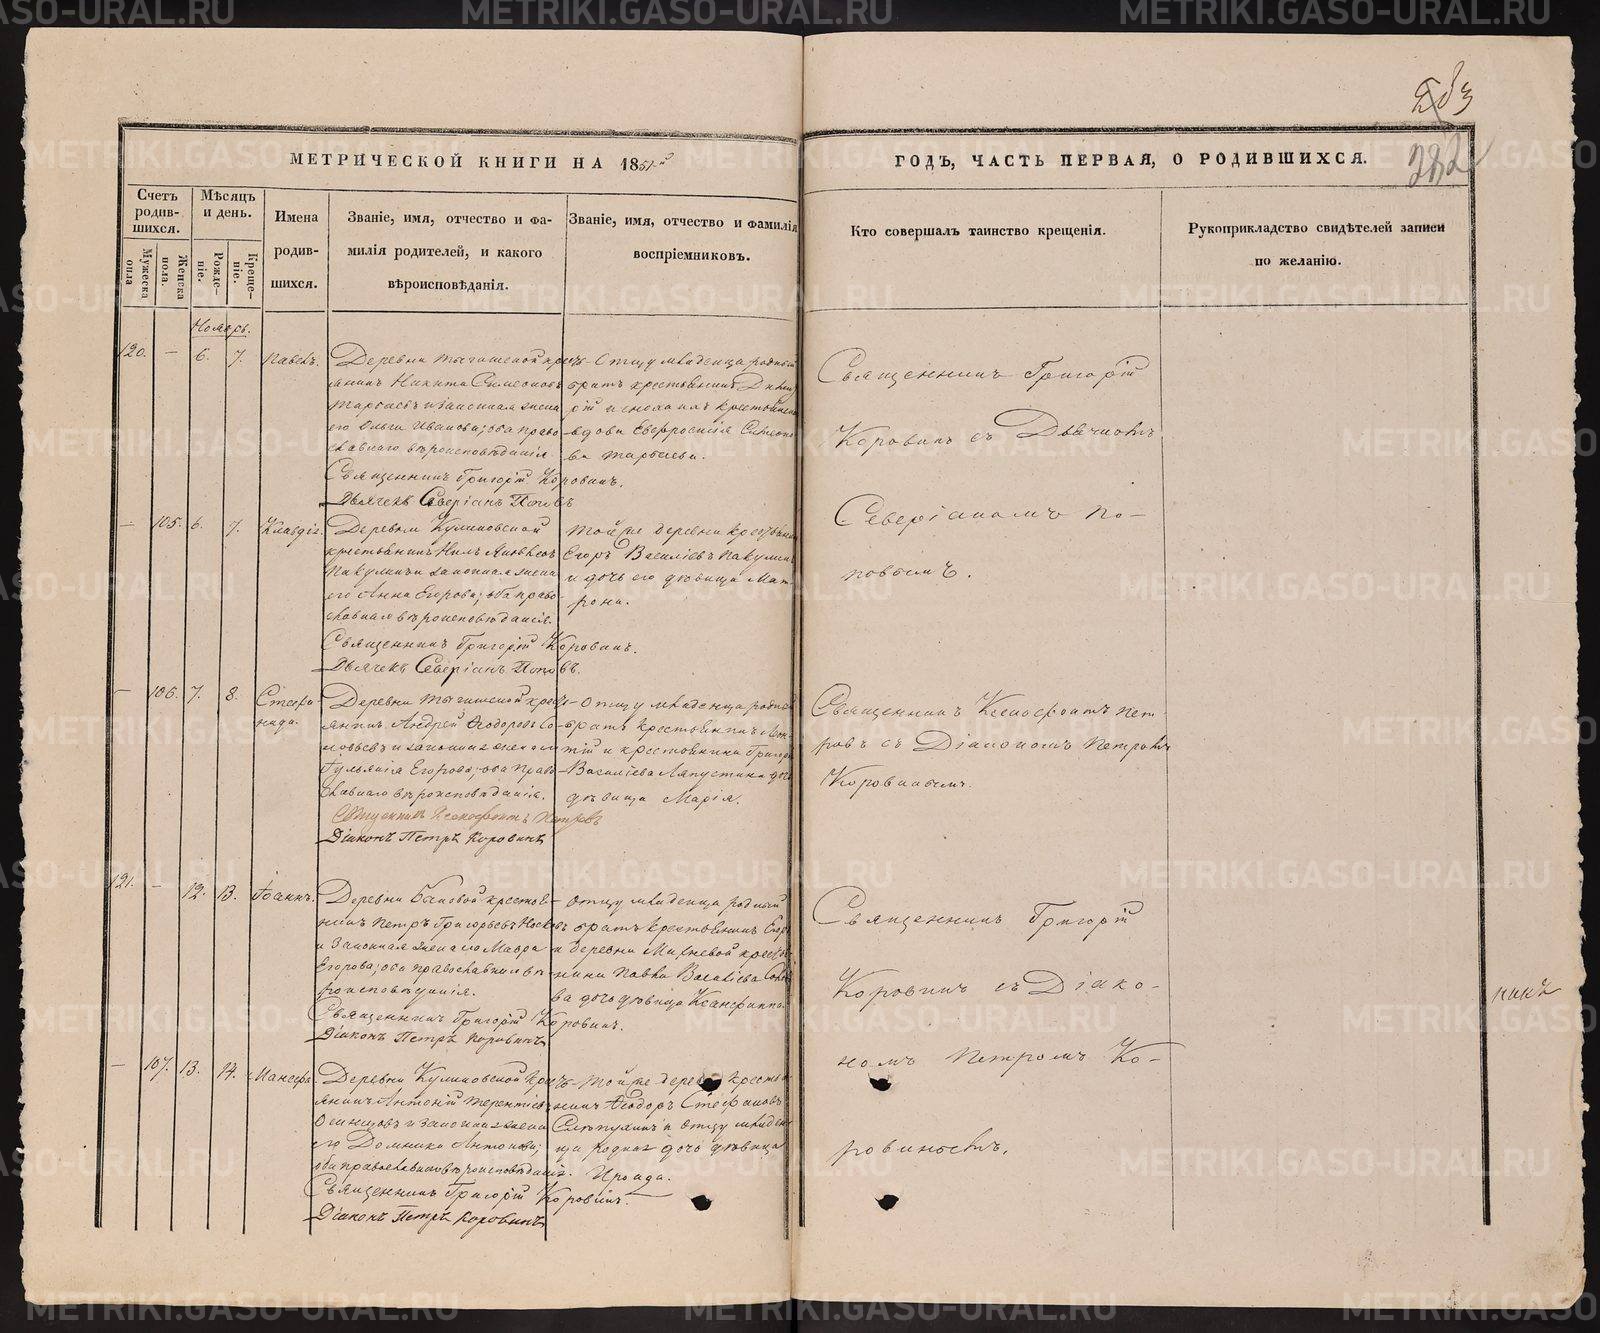 283
282
МЕТРИЧЕСКОЙ КНИГИ НА 1851-й
ГОДЪ, ЧАСТЬ ПЕРВАЯ, О РОДИВШИХСЯ.
Счетъ родив-шихся.
Мужеска пола
Женска пола.
Мѣсяцъ и день.
Рожде-ніе.
Креще-ніе.
Имена
родив-
шихся.
Званіе, имя, отчество и фа-
милія родителей, и какого
вѣроисповѣданія.
Званіе, имя, отчество и фамилія
воспріемниковъ.
Кто совершалъ таинство крещенія.
Рукоприкладство свидѣтелей записи
по желанію.
Ноябрь.
120. — 6. 7. Павелъ.
Деревни Тыгишской крес-
янинъ Никита Симеоновъ
и законная жена
его Ольга Иванова; оба право
славнаго вѣроисповѣданія.
Священникъ Григорій Коровинъ.
Дьячекъ Северіанъ Поповъ
Отцу младенца родный
братъ крестьянинъ
вдова Евфросинія Симеоно
ва
Священникъ Григорій
Коровинъ съ Дьячкомъ
Северіаномъ По-
повымъ.
— 105. 6. 7. Клавдія.
Деревни Куликовской
крестьянинъ Нилъ Яковлевъ
Пакулинъ и законная жена
его Анна Егорова; оба право-
славнаго вѣроисповѣданія.
Священникъ Григорій Коровинъ.
Дьячекъ Северіанъ Поповъ.
Той же деревни крестьянинъ
Егоръ Василіевъ Пакулинъ
и дочь его дѣвица Мат
рона.
— 106. 7. 8. Стефа
нида.
Деревни Тыгишской крес
янинъ Андрей Ѳеодоровъ Со-
ловьевъ и законная жена
Гульянія Егорова; оба право
славнаго вѣроисповѣданія.
Священникъ Ксенофонтъ Петровъ
Діаконъ Петръ Коровинъ
Отцу младенца родный
братъ крестьянинъ Леон-
тій и крестьянина Григорія
Василіева Ляпустина дочь
дѣвица Марія.
Священникъ Ксенофонтъ Пет
ровъ съ Діакономъ Петромъ
Коровинымъ.
121. — 12. 13. Іоаннъ.
Деревни Бановой крестьян-
нинъ Петръ Григорьевъ Носковъ
и законная жена его Мавра
Егорова; оба православнаго вѣ-
роисповѣданія.
Священникъ Григорій Коровинъ.
Діаконъ Петръ Коровинъ
Отцу младенца родный
братъ крестьянинъ Егоръ
и деревни крестья
нина Павла Василіева
ва дочь дѣвица Ксанфиппа.
Священникъ Григорій
Коровинъ съ Діако-
номъ Петромъ Ко-
ровинымъ.
— 107. 13. 14. Манефа.
Деревни Куликовской крес
янинъ Антоній Терентіевъ
Осинцовъ и законная жена
его Домника Антонова;
оба православнаго вѣроисповѣданія.
Священникъ Григорій Коровинъ.
Діаконъ Петръ Коровинъ
Той же деревни крестья
нинъ Ѳеодоръ Стефановъ
и отцу младен
ца родная дочь дѣвица
Ираида.